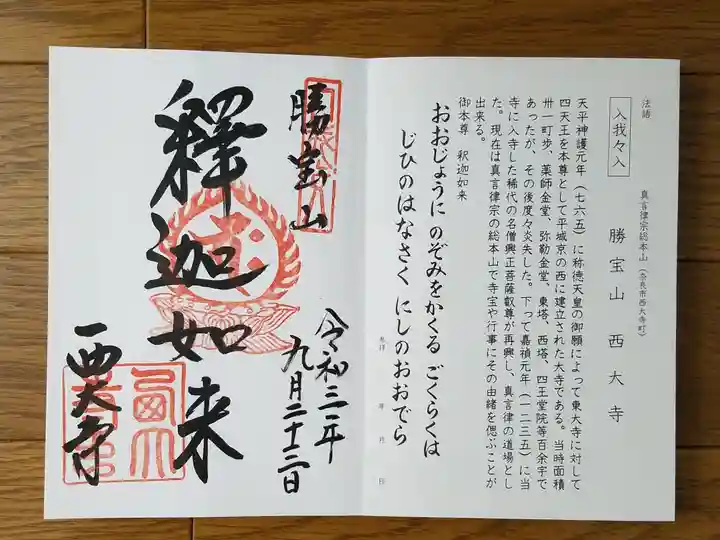 法語
入我々入
真言律宗総本山(奈良市西大寺町)
勝宝山 西大寺
天平神護元年(七六五)に称徳天皇の御願によって東大寺に対して
四天王を本尊として平城京の西に建立された大寺である。当時面積
卅一町歩、薬師金堂、弥勒金堂、東塔、西塔、四王堂院等百余宇で
あったが、その後度々炎失した。下って嘉禎元年(一二三五)に当
寺に入寺した稀代の名僧興正菩薩叡尊が再興し、真言律の道場とし
た。現在は真言律宗の総本山で寺宝や行事にその由緒を偲ぶことが
出来る。
御本尊 釈迦如来
おおじょうに のぞみをかくる ごくらくは
じひのはなさく にしのおおでら
参拝 年 月 日
勝宝山
釋迦如来
西大寺
令和三年
九月二十三日